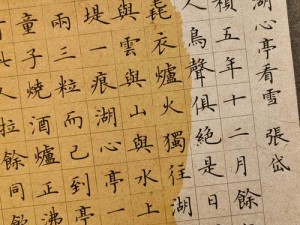 湖心亭看雪 張岱
禎五年十二月餘
人鳥聲俱絕是日
毳衣爐火獨往湖
與雲與山與水上
堤一痕湖心亭一
兩三粒而已到亭
童子燒酒爐正沸
此人拉餘同